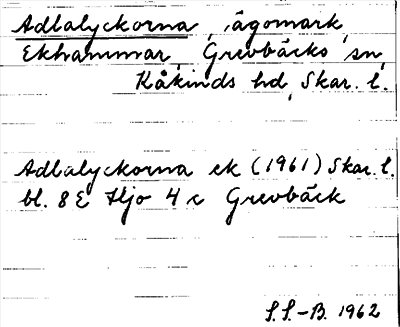 Adlalyckorna, ägomark,
Ekhammar, Grevbäcks sn,
Kåkinds hd, Skar. l.
Adlalyckorna ek (1961) Skar. l.
bl. 8 E Hjo 4 c Grevbäck
S.S.-B. 1962